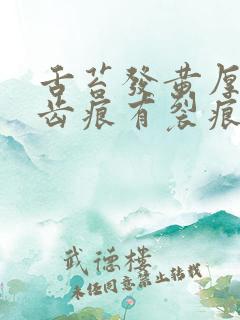 舌苔發黄厚
齒痕有裂痕
武德樓
未经同意禁止转载